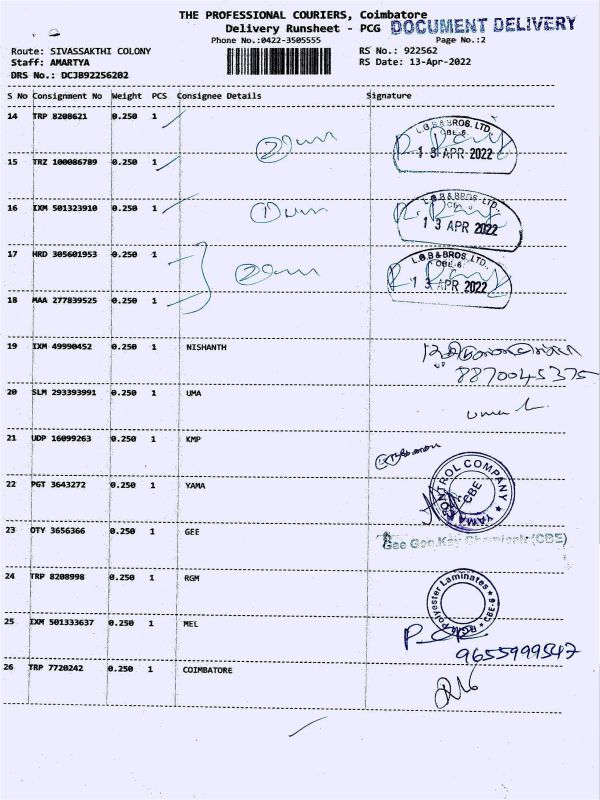 THE PROFESSIONAL COURIERS, Coimbatore
Delivery Runsheet - PCG DOCUMENT DELIVERY
Phone No.:0422-3505555 Page No.:2
Route: SIVASSAKTHI COLONY RS No.: 922562
Staff: AMARTYA RS Date: 13-Apr-2022
DRS No.: DCJB92256202
S No Consignment No Weight PCS Consignee Details Signature
14 TRP 8208621 0.250 1
L.G.B & BROS. LTD.,
CBE-6.
13 APR 2022
15 TRZ 100086789 0.250 1
16 IXM 501323910 0.250 1
L.G.B & BROS. LTD.,
13 APR 2022
17 HRD 305601953 0.250 1
L.G.B & BROS. LTD.,
CBE-6.
13 APR 2022
18 MAA 277839525 0.250 1
19 IXM 49990452 0.250 1 NISHANTH
8870045375
20 SLM 293393991 0.250 1 UMA
uma
21 UDP 16099263 0.250 1 KMP
22 PGT 3643272 0.250 1 YAMA
YAMA CONTROL COMPANY
CBE
23 OTY 3656366 0.250 1 GEE
Gee Gee Kay Chemicals (CBE)
24 TRP 8208998 0.250 1 RGM
RGM Polyester Laminates
25 IXM 501333637 0.250 1 MEL
9655999547
26 TRP 7720242 0.250 1 COIMBATORE